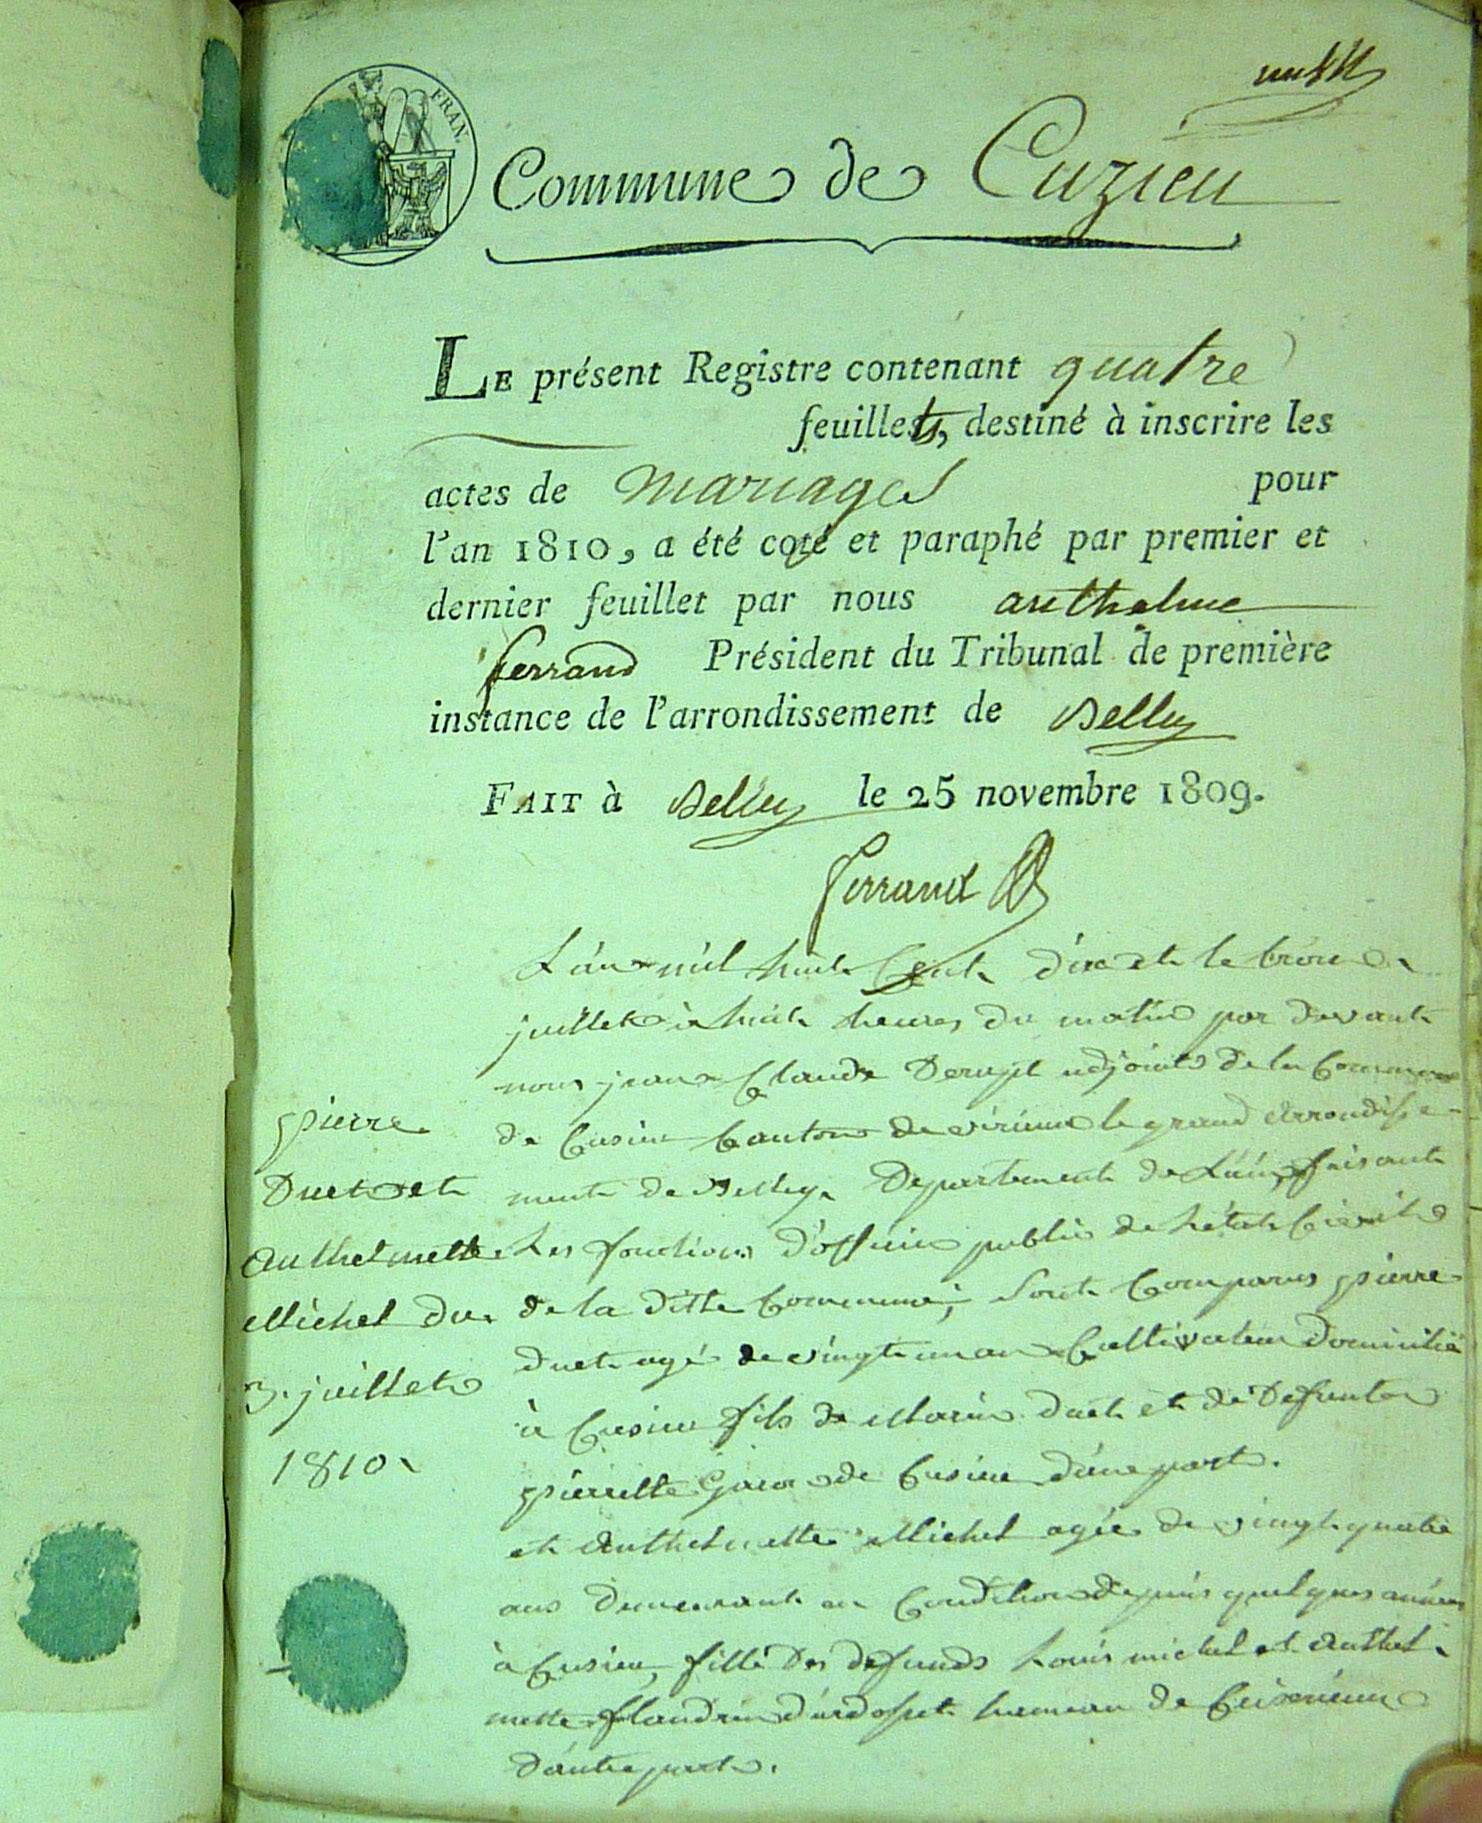 FRAN.
Commune de Cuzieu
LE présent Registre contenant quatre
feuillets, destiné à inscrire les
actes de mariages pour
l'an 1810, a été coté et paraphé par premier et
dernier feuillet par nous anthelme
ferrand Président du Tribunal de première
instance de l'arrondissement de Belley
FAIT à Belley le 25 novembre 1809.
Ferrand
L'an mil huit Cent dix et le trois
juillet à huit heures du matin par devant
nous jean Claude Derupt adjoint de la Commune
de Cusieu Canton de virieu le grand arrondisse-
ment de Belley Département de L'ain, faisant
les fonctions d'officier public de L'état Civil
de la ditte Commune; Sont Comparus pierre
duet agé de vingt un an Cultivateur Domicilié
à Cusieu fils de Marin duet et de Defunte
pierrette de Cusieu d'une part.
et Anthelmette Michel agée de vingt quatre
ans demeurant en Condition depuis quelques années
à Cusieu, fille des defunds Louis michel et Anthel-
mette flandrin d'ardosset hameau de Ceixerieux
d'autre part.
pierre
Duet et
Anthelmette
Michel du
3. juillet
1810